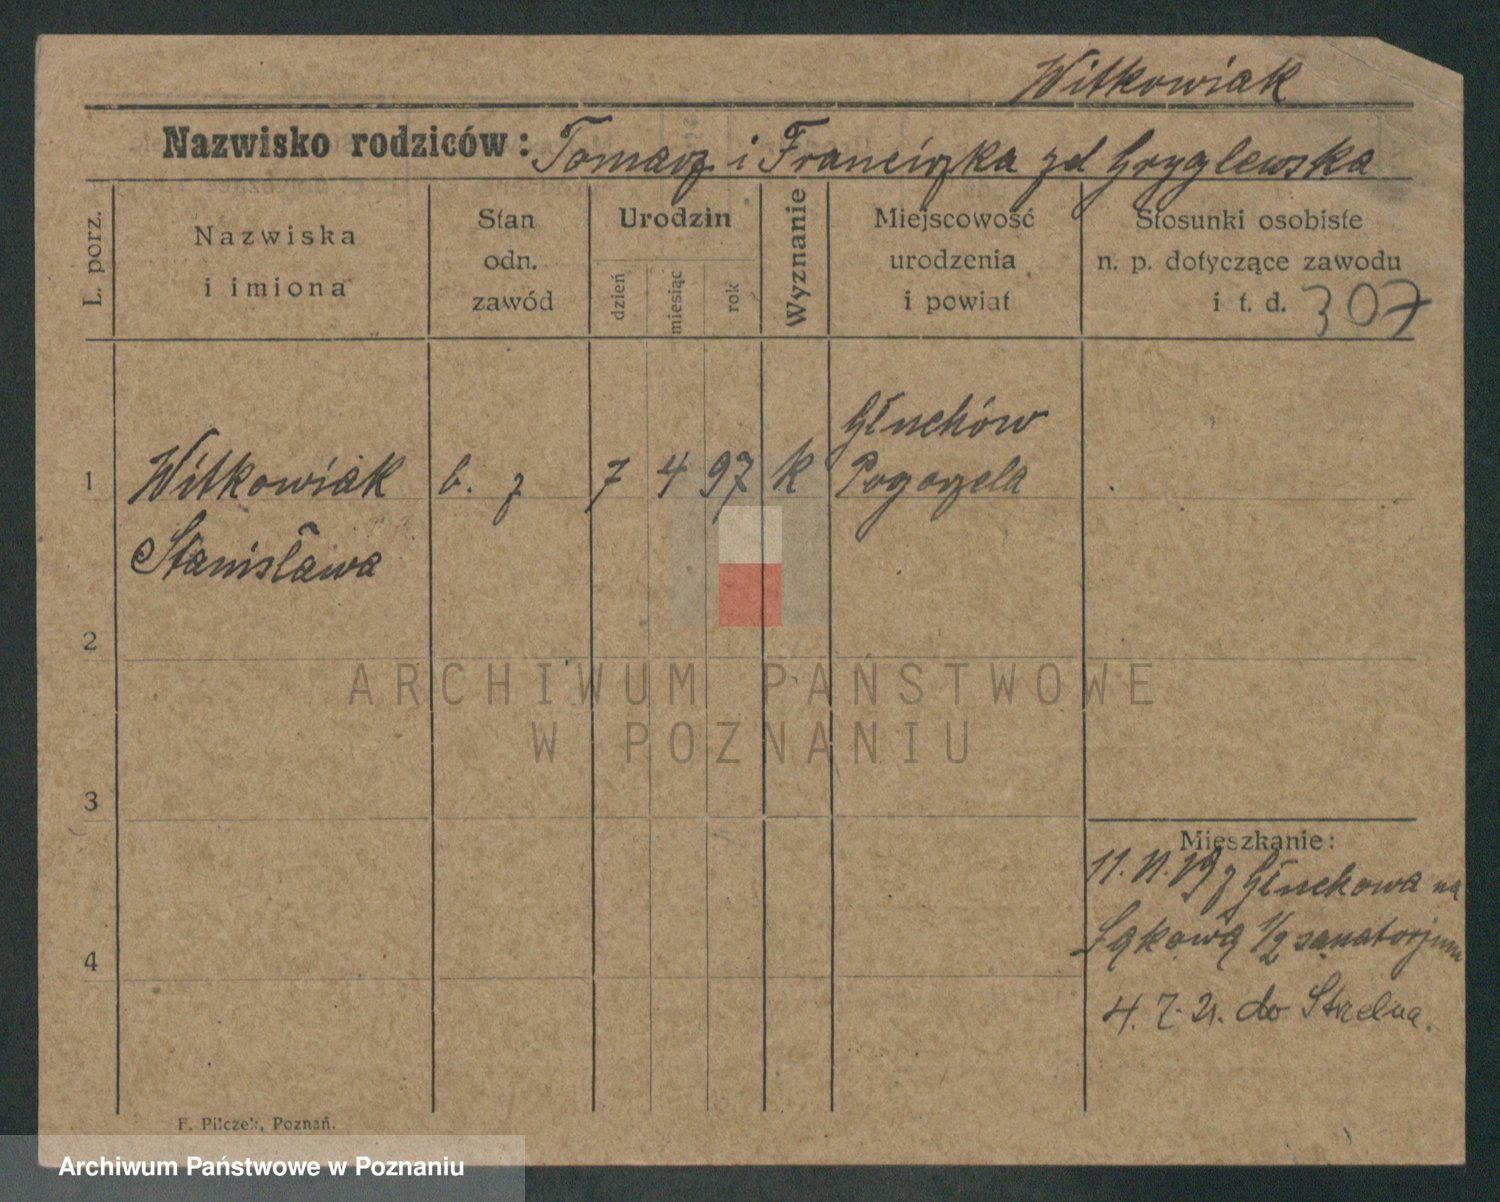 Witkowiak
Nazwisko rodziców: Tomasz i Franciszka zd Gryglewska
L. porz.
Nazwiska
i imiona
Stan
odn.
zawód
Urodzin
dzień
miesiąc
rok
Wyznanie
Miejscowość
urodzenia
i powiat
Stosunki osobiste
n. p. dotyczące zawodu
i t. d. 307
Głuchów
1 Witkowiak b. z 7 4 97 k Pogorzela
Stanisława
2
ARCHIWUM PAŃSTWOWE
W POZNANIU
3
Mieszkanie:
11. VI. 19 z Głuchowa na
Łąkową 1/2 sanatorjum
4
4. 7. 21. do Strzelna.
F. Pilczek, Poznań.
Archiwum Państwowe w Poznaniu